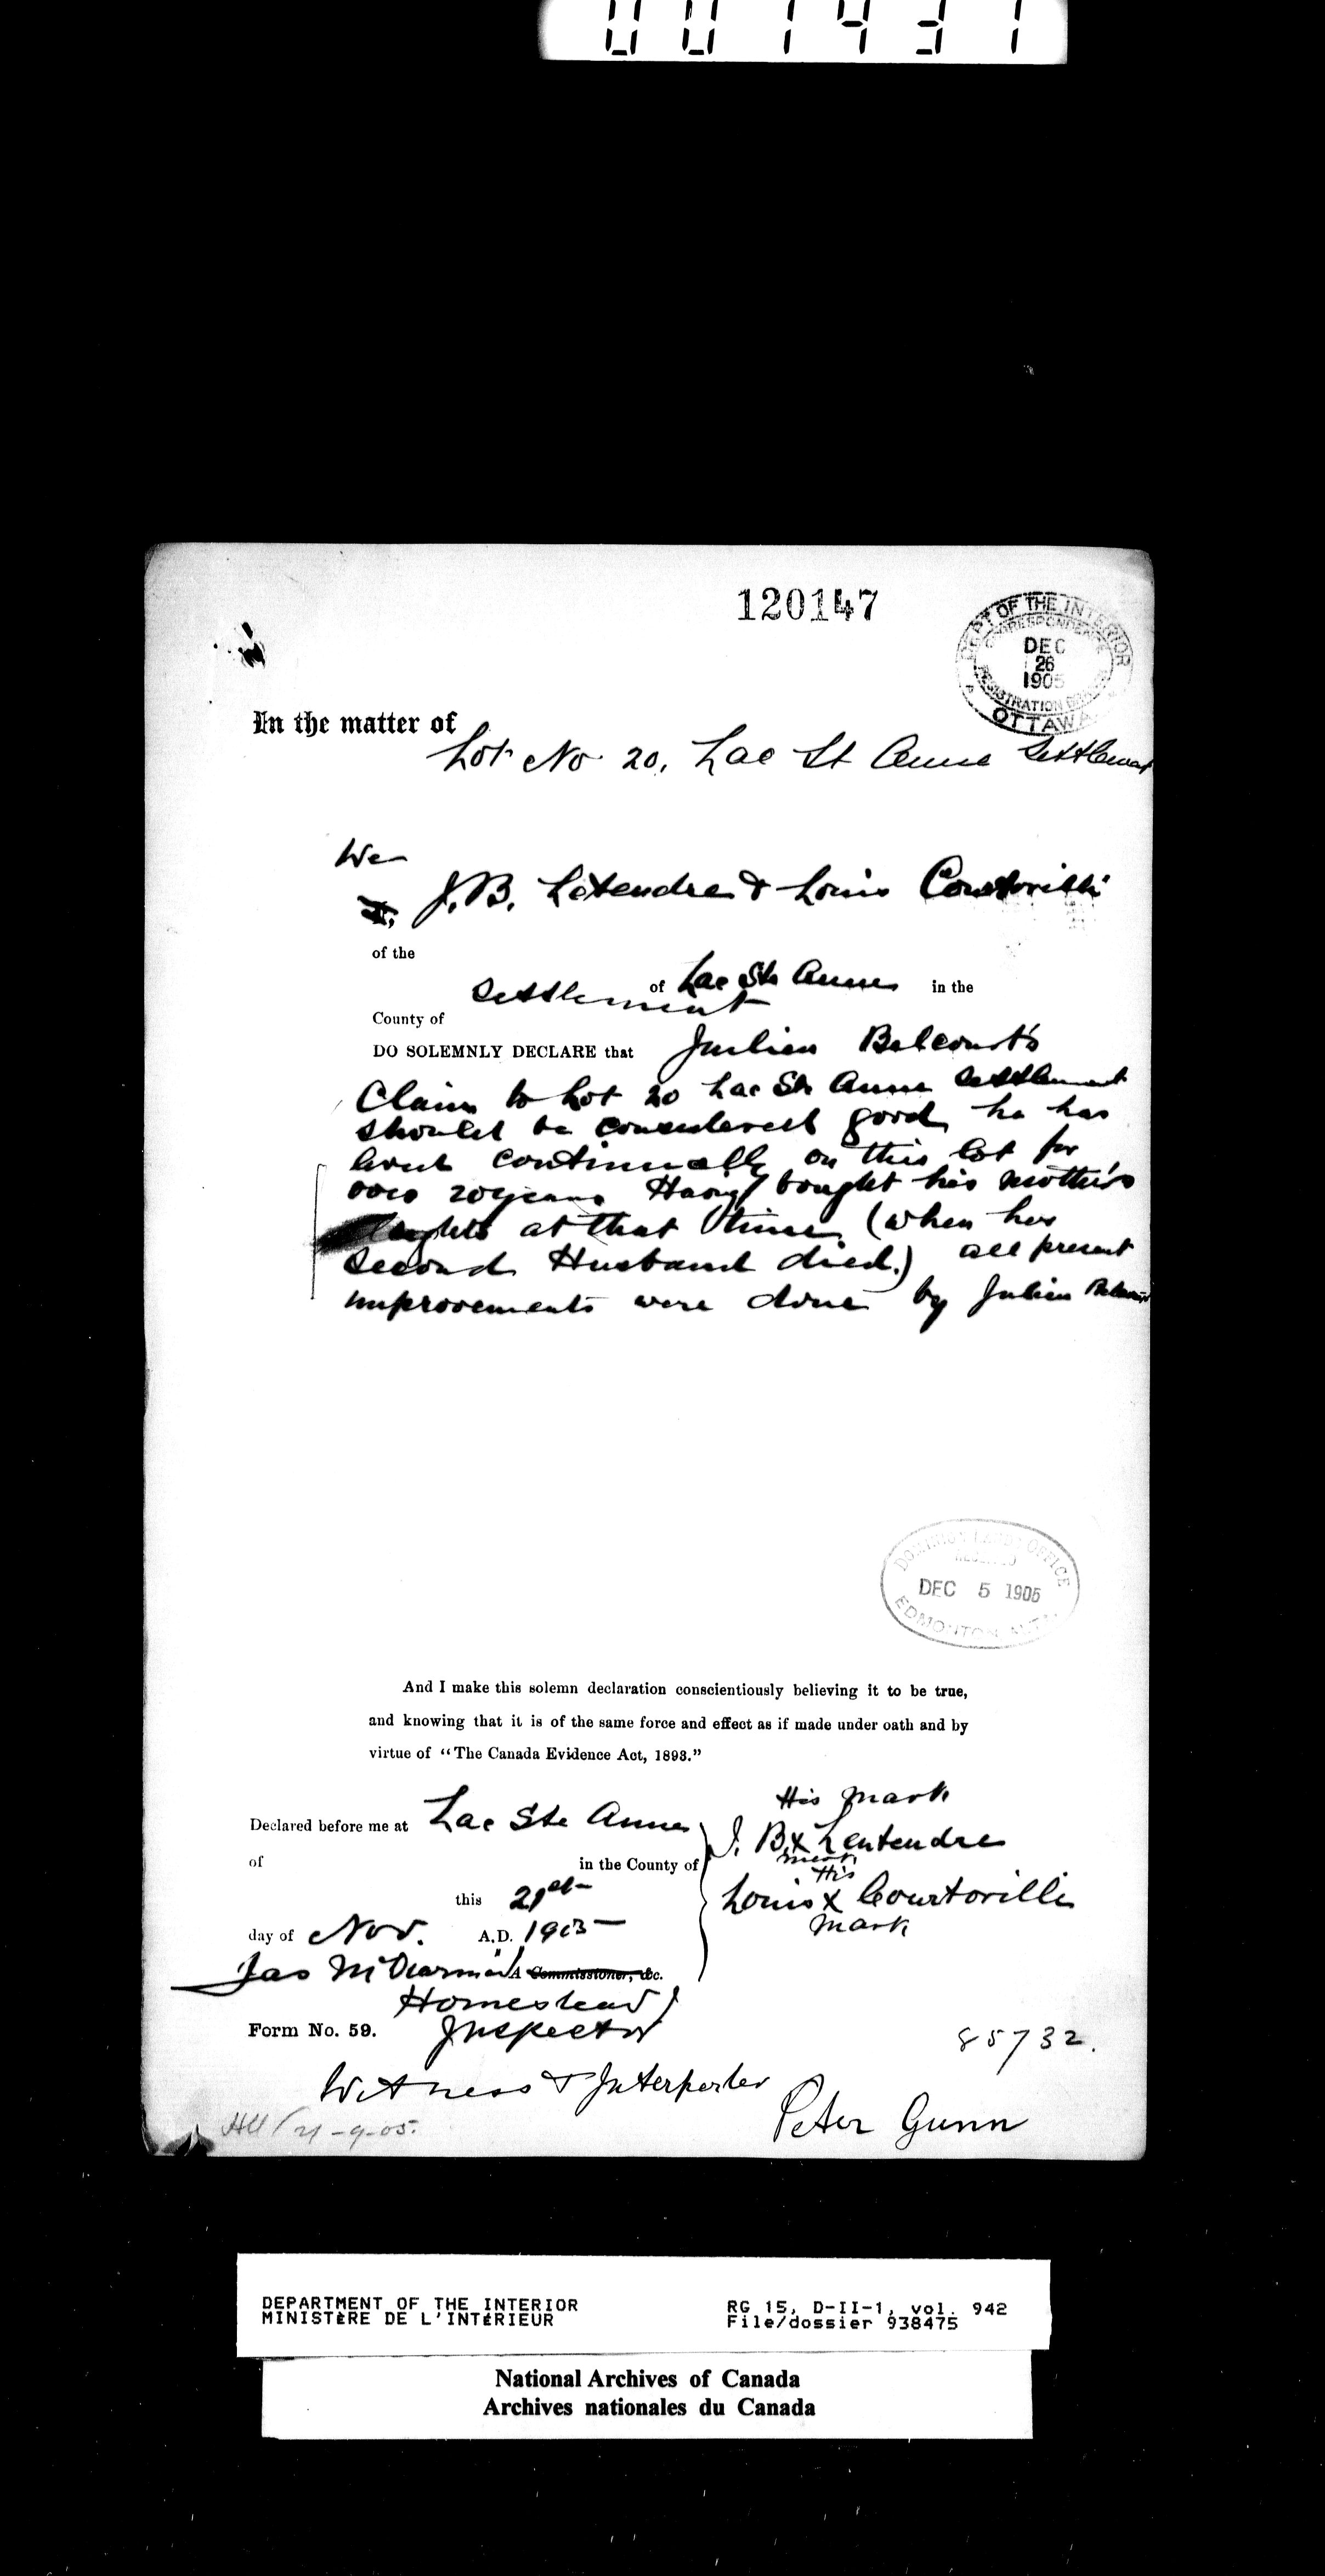 001431
120147
DEPT OF THE INTERIOR
CORRESPONDENCE
DEC
26
1905
REGISTRATION
OTTAWA
In the matter of
Lot No 20, Lac St Anne Settlement
We
I, J. B. Letendre & Louis Courtorille
of the
Settlement of Lac Ste Anne in the
County of
DO SOLEMNLY DECLARE that Julien Belcourt's
Claim to Lot 20 Lac Ste Anne Settlement
should be considered good, he has
lived continually on this lot for
over 20 years Having bought his mother's
Rights at that time (when her
second Husband died.) all present
improvements were done by Julien Belcourt
DOMINION LANDS OFFICE
RECEIVED
DEC 5 1905
EDMONTON ALTA
And I make this solemn declaration conscientiously believing it to be true,
and knowing that it is of the same force and effect as if made under oath and by
virtue of "The Canada Evidence Act, 1893."
His Mark
Declared before me at Lac Ste Anne
J. B. X Lentendre
mark
of in the County of
His
this 21st
Louis X Courtorille
Mark
day of Nov. A.D. 1905
Jas McDiarmid A Commissioner, &c.
Homestead
Form No. 59. Inspector
85732.
Witness & Interperter
Peter Gunn
21-9-05.
DEPARTMENT OF THE INTERIOR RG 15, D-II-1, vol. 942
MINISTÈRE DE L'INTÉRIEUR File/dossier 938475
National Archives of Canada
Archives nationales du Canada